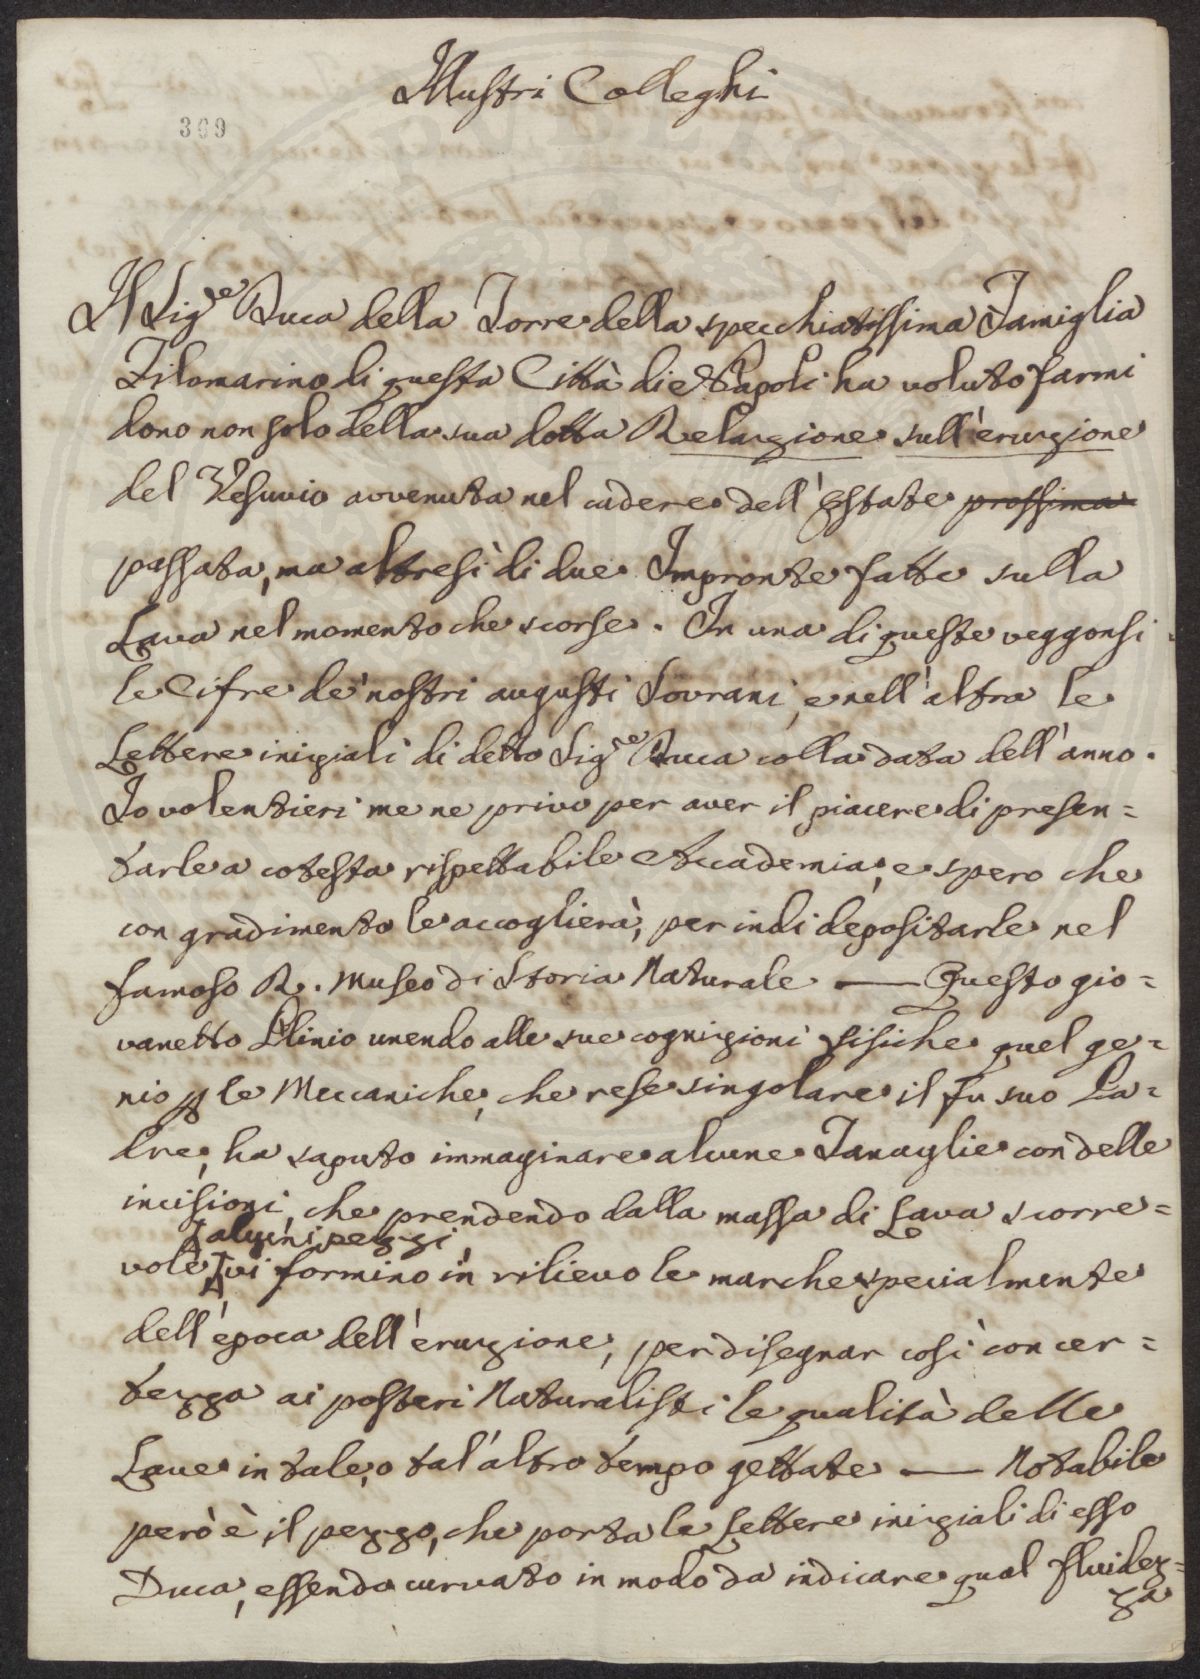 Illustri Colleghi
369
Il Sig.re Duca della Torre della specchiatissima Famiglia
Filomarino di questa Città di Napoli ha voluto farmi
dono non solo della sua dotta Relazione sull'eruzione
del Vesuvio avvenuta nel cadere dell'Estate prossima
passata, ma altresì di due Impronte fatte sulla
Lava nel momento che scorse. In una di queste veggonsi
le Cifre de' nostri augusti Sovrani, e nell'altra le
Lettere iniziali di detto Sig.re Duca colla data dell'anno.
Io volentieri me ne privo per aver il piacere di presen=
tarle a cotesta rispettabile Accademia, e spero che
con gradimento le accoglierà, per indi depositarle nel
famoso R. Museo di Storia Naturale — Questo gio=
vanetto Plinio unendo alle sue cognizioni fisiche quel ge=
nio p le Meccaniche, che rese singolare il fu suo Pa=
dre, ha saputo immaginare alcune Tanaglie con delle
incisioni, che prendendo dalla massa di Lava scorre=
alcuni pezzi,
vole vi formino in rilievo le marche specialmente
dell'epoca dell'eruzione, per disegnar così con cer=
tezza ai posteri Naturalisti le qualità delle
Lave in tale, o tal'altro tempo gettate — Notabile
però è il pezzo, che porta le Lettere iniziali di esso
Duca, essendo curvato in modo da indicare qual fluidez=
za